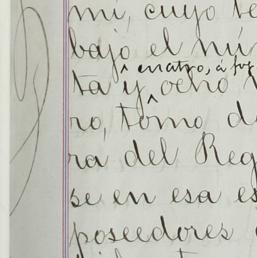 mí, cuyo te
bajo el nú
cuatro, á fo
ta y ocho
ro, tomo d
ra del Reg
se en esa es
poseedores